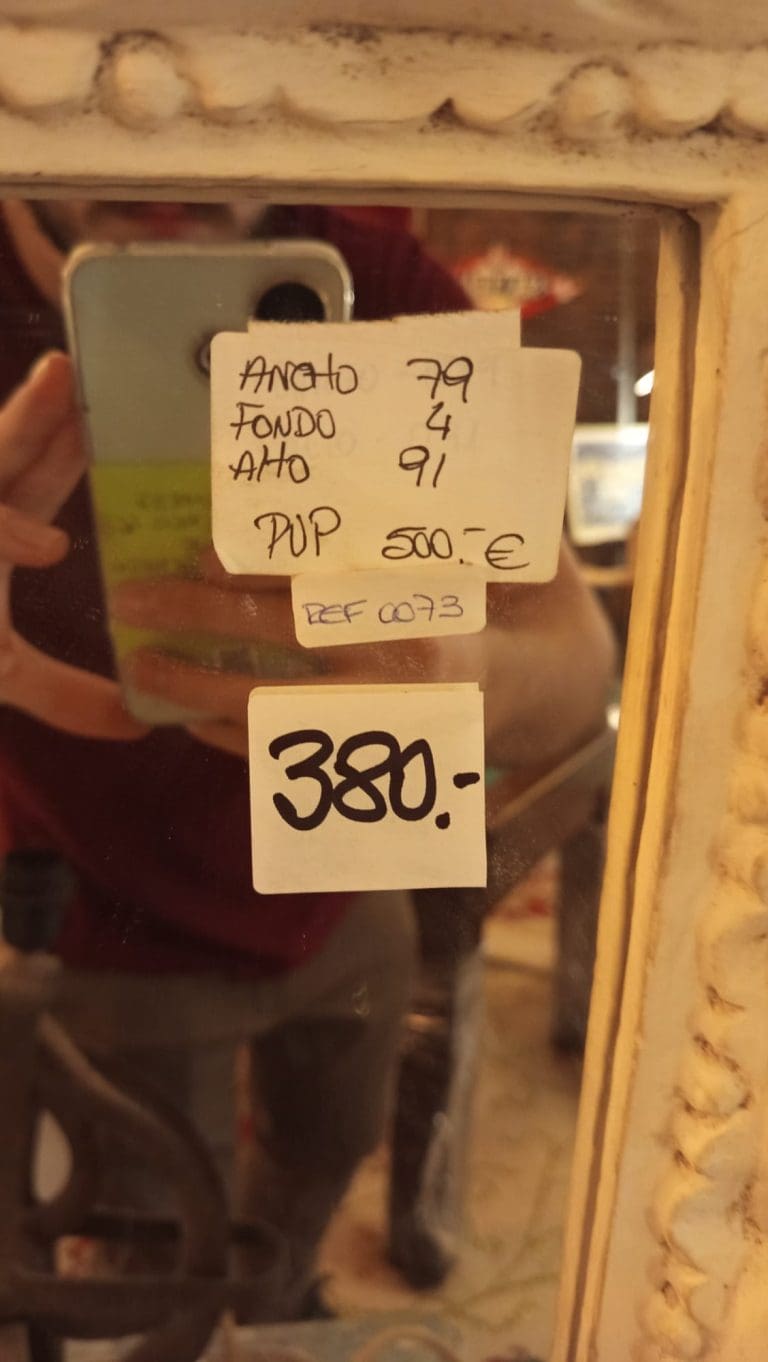 ANCHO 79
FONDO 4
AltO 91
PVP 500.-€
REF 0073
380.-